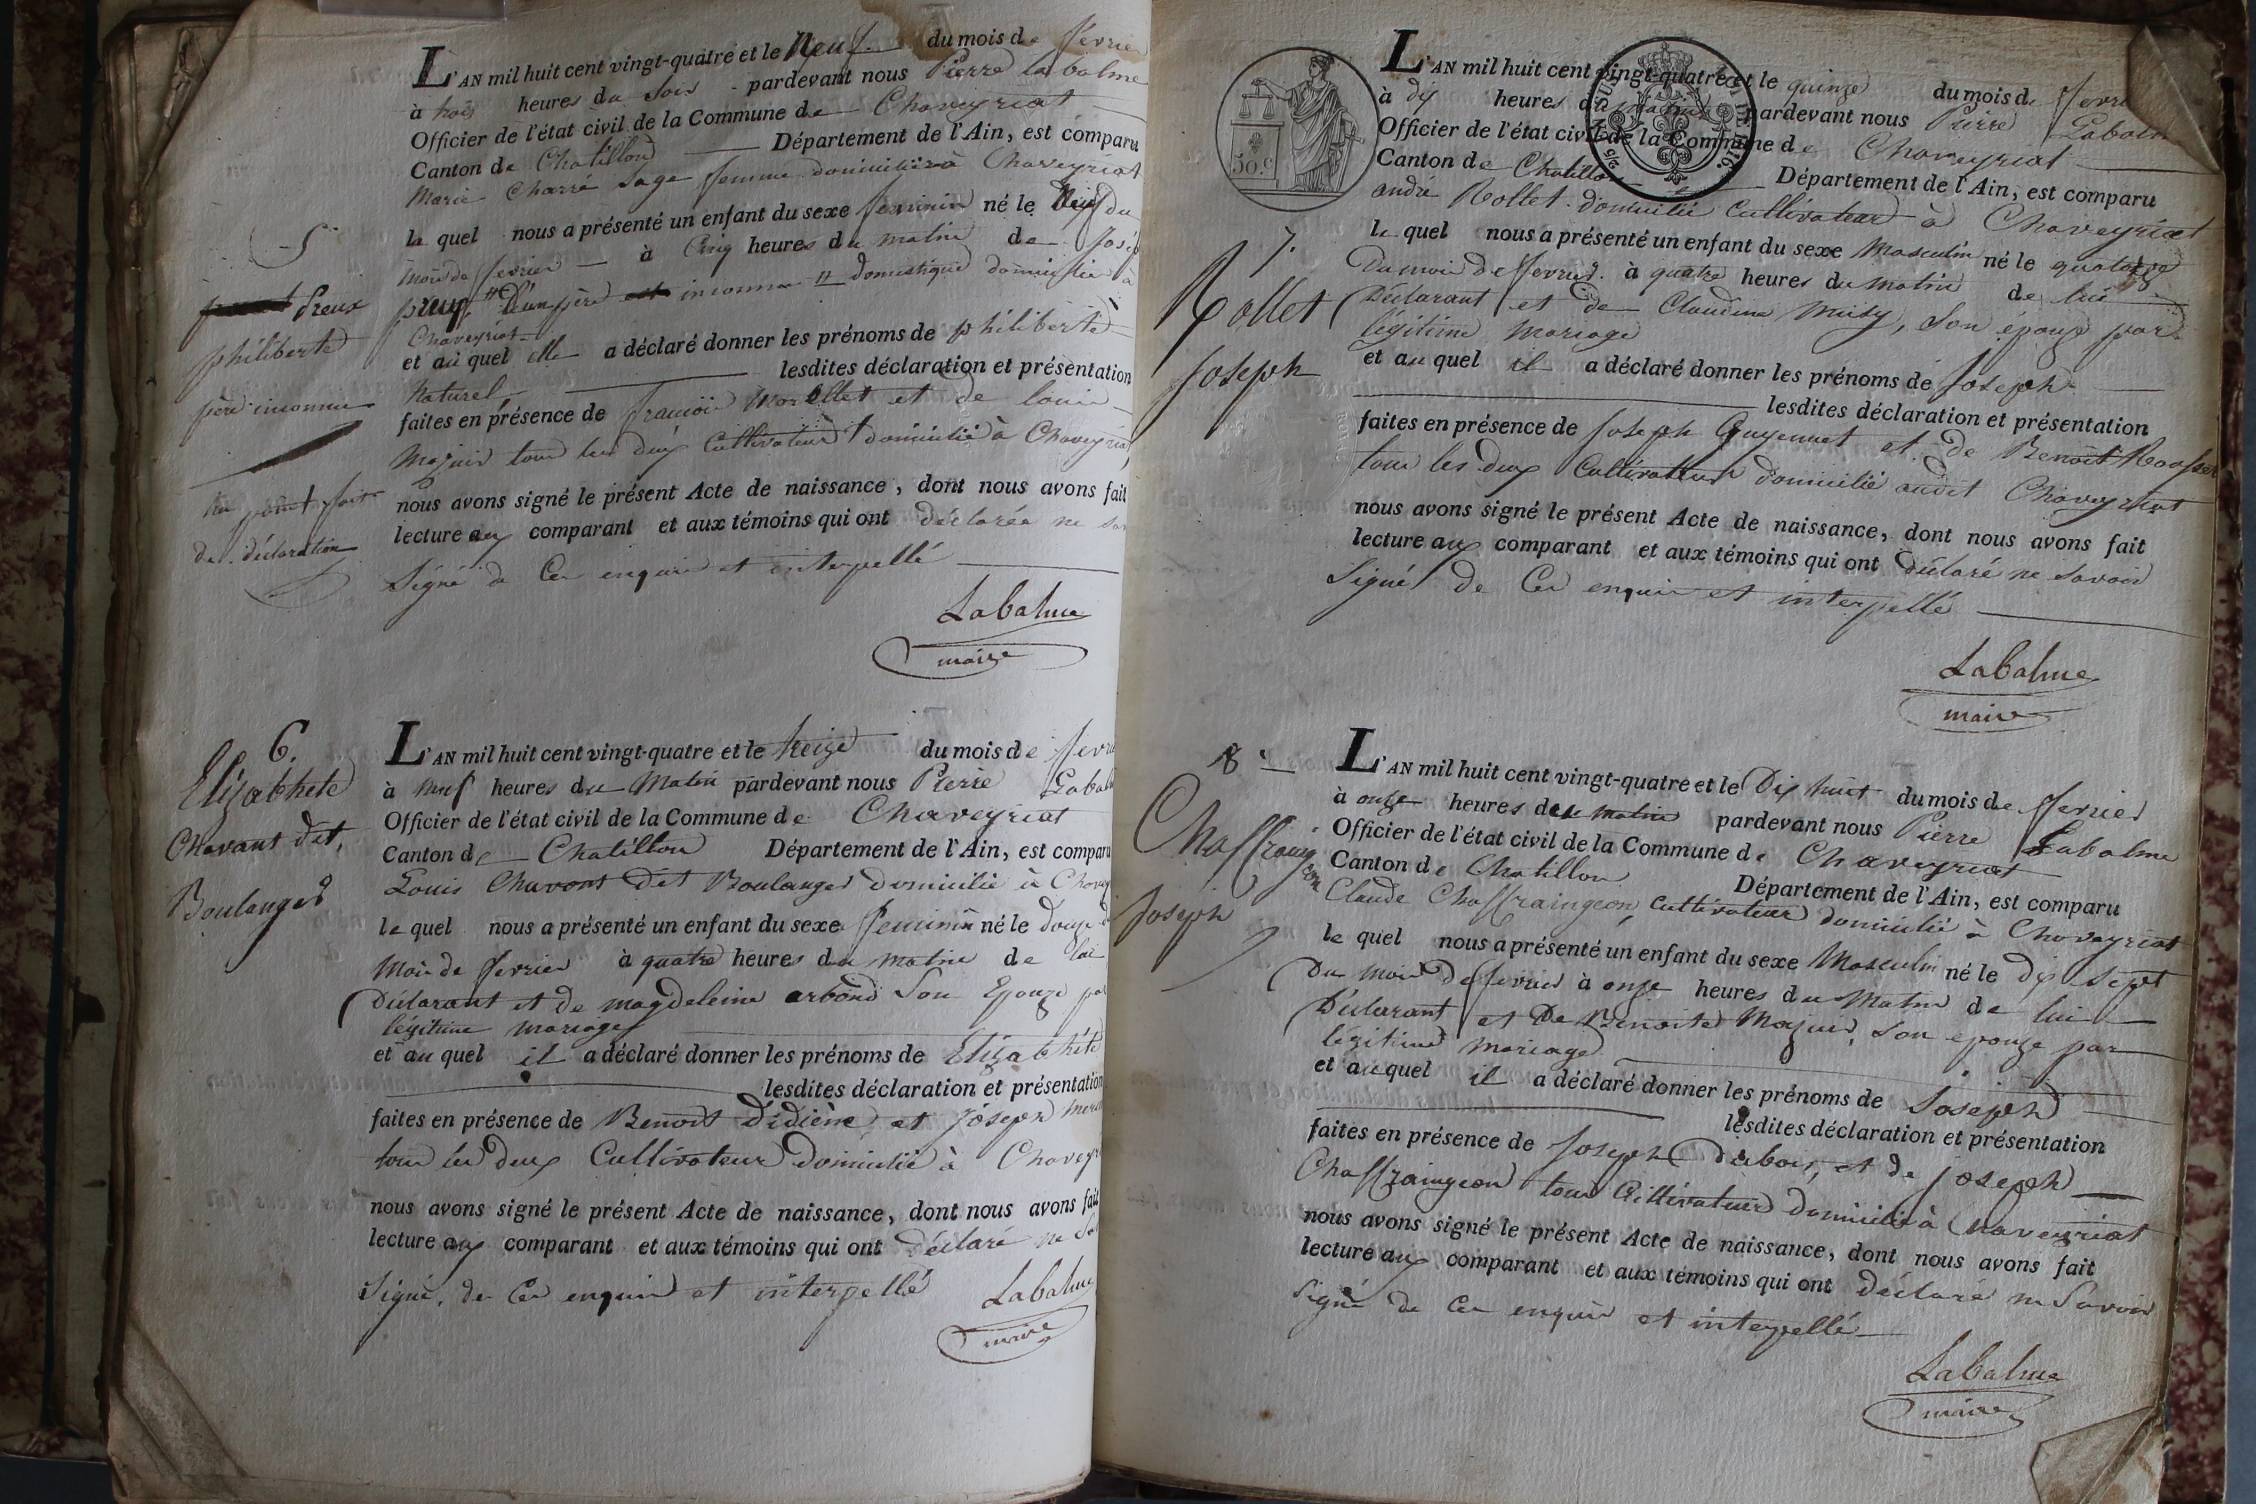 5
Preux
philiberte
père inconnu
de déclaration
L'AN mil huit cent vingt-quatre et le Neuf du mois de fevrier
à trois heures du Soir pardevant nous Pierre labalme
Officier de l'état civil de la Commune de Chaveyriat
Canton de Chatillon Département de l'Ain, est comparu
Marie Charré Sage femme domiciliée à Chaveyriat
la quel nous a présenté un enfant du sexe feminin né le Neuf du
mois de fevrier à Cinq heures du matin de
D'un père inconnu domestique domicilié à
Chaveyriat
et au quel elle a déclaré donner les prénoms de philiberte
Naturel lesdites déclaration et présentation
faites en présence de françois Morellet et de louis
Majuis tous les deux Cultivateurs domicilié à Chaveyriat
nous avons signé le présent Acte de naissance, dont nous avons fait
lecture aux comparant et aux témoins qui ont déclarée ne
Signé de Ce enquis et interpellé
Labalme
maire
6.
Elizabhete
Chavant dit,
Boulanger
L'AN mil huit cent vingt-quatre et le treize du mois de
à neuf heures du Matin pardevant nous Pierre
Officier de l'état civil de la Commune de Chaveyriat
Canton de Chatillon Département de l'Ain, est comparu
Louis Chavant dit Boulanger domicilié à
le quel nous a présenté un enfant du sexe feminin né le douze
Mois de fevrier à quatre heures du matin de lui
Déclarant et de magdeleine arband Son Epouze par
légitime mariage
et au quel il a déclaré donner les prénoms de Elizabhete
lesdites déclaration et présentation
faites en présence de Benoit Didiène et Joseph
tous les deux Cultivateur domicilié à
nous avons signé le présent Acte de naissance, dont nous avons fait
lecture aux comparant et aux témoins qui ont déclaré ne
Signé, de Ce enquis et interpellé
Labalme
maire
50.c
7.
Rollet
Joseph
L'AN mil huit cent vingt-quatre et le quinze du mois de
à dix heures du matin pardevant nous Pierre
Officier de l'état civil de la Commune de Chaveyriat
Canton de Chatillon Département de l'Ain, est comparu
andré Rollet domicilié Cultivateur à Chaveyriat
le quel nous a présenté un enfant du sexe Masculin né le quatorze
Du mois de fevrier à quatre heures du matin de lui
Déclarant et de Claudine Musy, Son épouze par
légitime mariage
et au quel il a déclaré donner les prénoms de Joseph
lesdites déclaration et présentation
faites en présence de Joseph Guyennet et de Benoit
tous les deux Cultivateur domicilié audit Chaveyriat
nous avons signé le présent Acte de naissance, dont nous avons fait
lecture aux comparant et aux témoins qui ont déclaré ne Savoir
Signé de Ce enquis et interpellé
Labalme
maire
8
Chaffraingeon
Joseph
L'AN mil huit cent vingt-quatre et le Dix huit du mois de fevrier
à onze heures du matin pardevant nous Pierre Labalme
Officier de l'état civil de la Commune de Chaveyriat
Canton de Chatillon Département de l'Ain, est comparu
Claude Chaffraingeon, Cultivateur domicilié à Chaveyriat
le quel nous a présenté un enfant du sexe Masculin né le dix Sept
Du mois de fevrier à onze heures du Matin de lui
Déclarant et De Benoite Majuis, Son épouze par
légitime mariage
et au quel il a déclaré donner les prénoms de Joseph
lesdites déclaration et présentation
faites en présence de Joseph Dubois, et de joseph
Chaffraingeon tous Cultivateur domicilié à Chaveyriat
nous avons signé le présent Acte de naissance, dont nous avons fait
lecture aux comparant et aux témoins qui ont déclaré ne Savoir
Signé de Ce enquis et interpellé
Labalme
maire